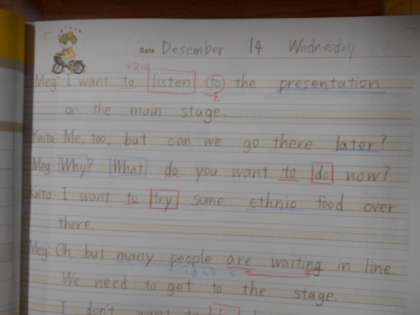 Date Desember 14 Wednesday
Meg: I want to listen to the presentation
on the main stage.
Kaito: Me, too, but can we go there later?
Meg: Why? What do you want to do now?
Kaito: I want to try some ethnic food over
there.
Meg: Oh, but many people are waiting in line.
We need to get to the stage.
I don't want to